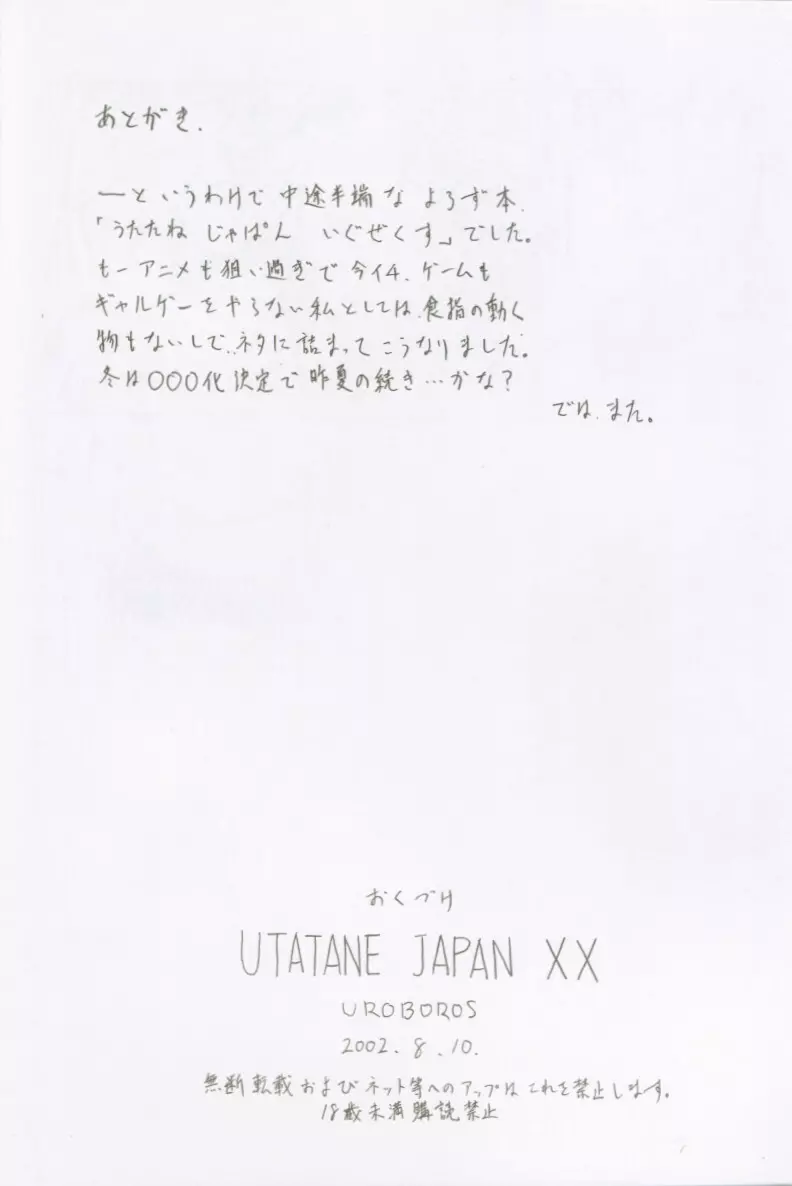 あとがき.
ーというわけで 中途半端な よろず本.
「うたたね じゃぱん いぐぜくす」でした。
もーアニメも狙い過ぎで今イ4、ゲームも
ギャルゲーをやらない私としては、食指の動く
物もないしで、ネタに詰まってこうなりました。
冬は○○○化決定で昨夏の続き…かな?
では、また。
おくづけ
UTATANE JAPAN XX
UROBOROS
2002. 8 .10.
無断転載およびネット等へのアップはこれを禁止します。
18歳未満購読禁止